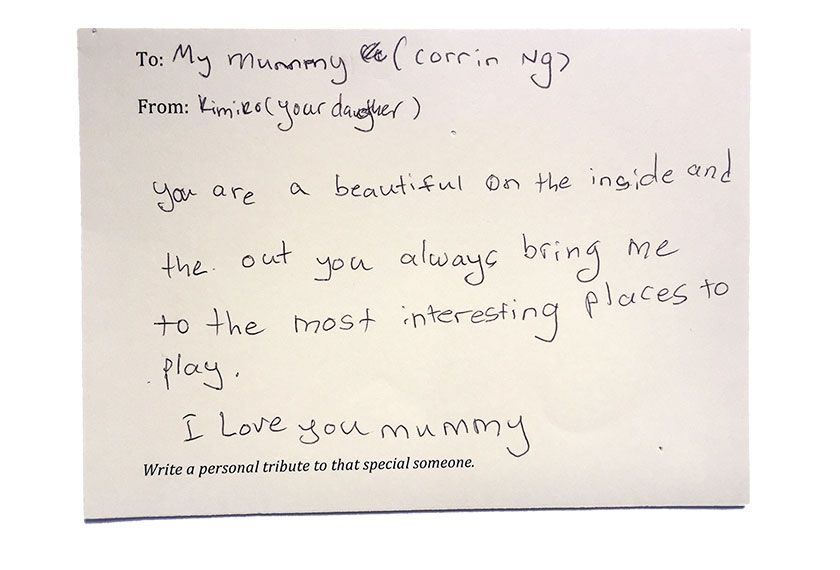 To: My mummy (corrin Ng)
From: Kimiko (your daughter)
you are a beautiful on the inside and
the out you always bring me
to the most interesting places to
play.
I Love you mummy
Write a personal tribute to that special someone.